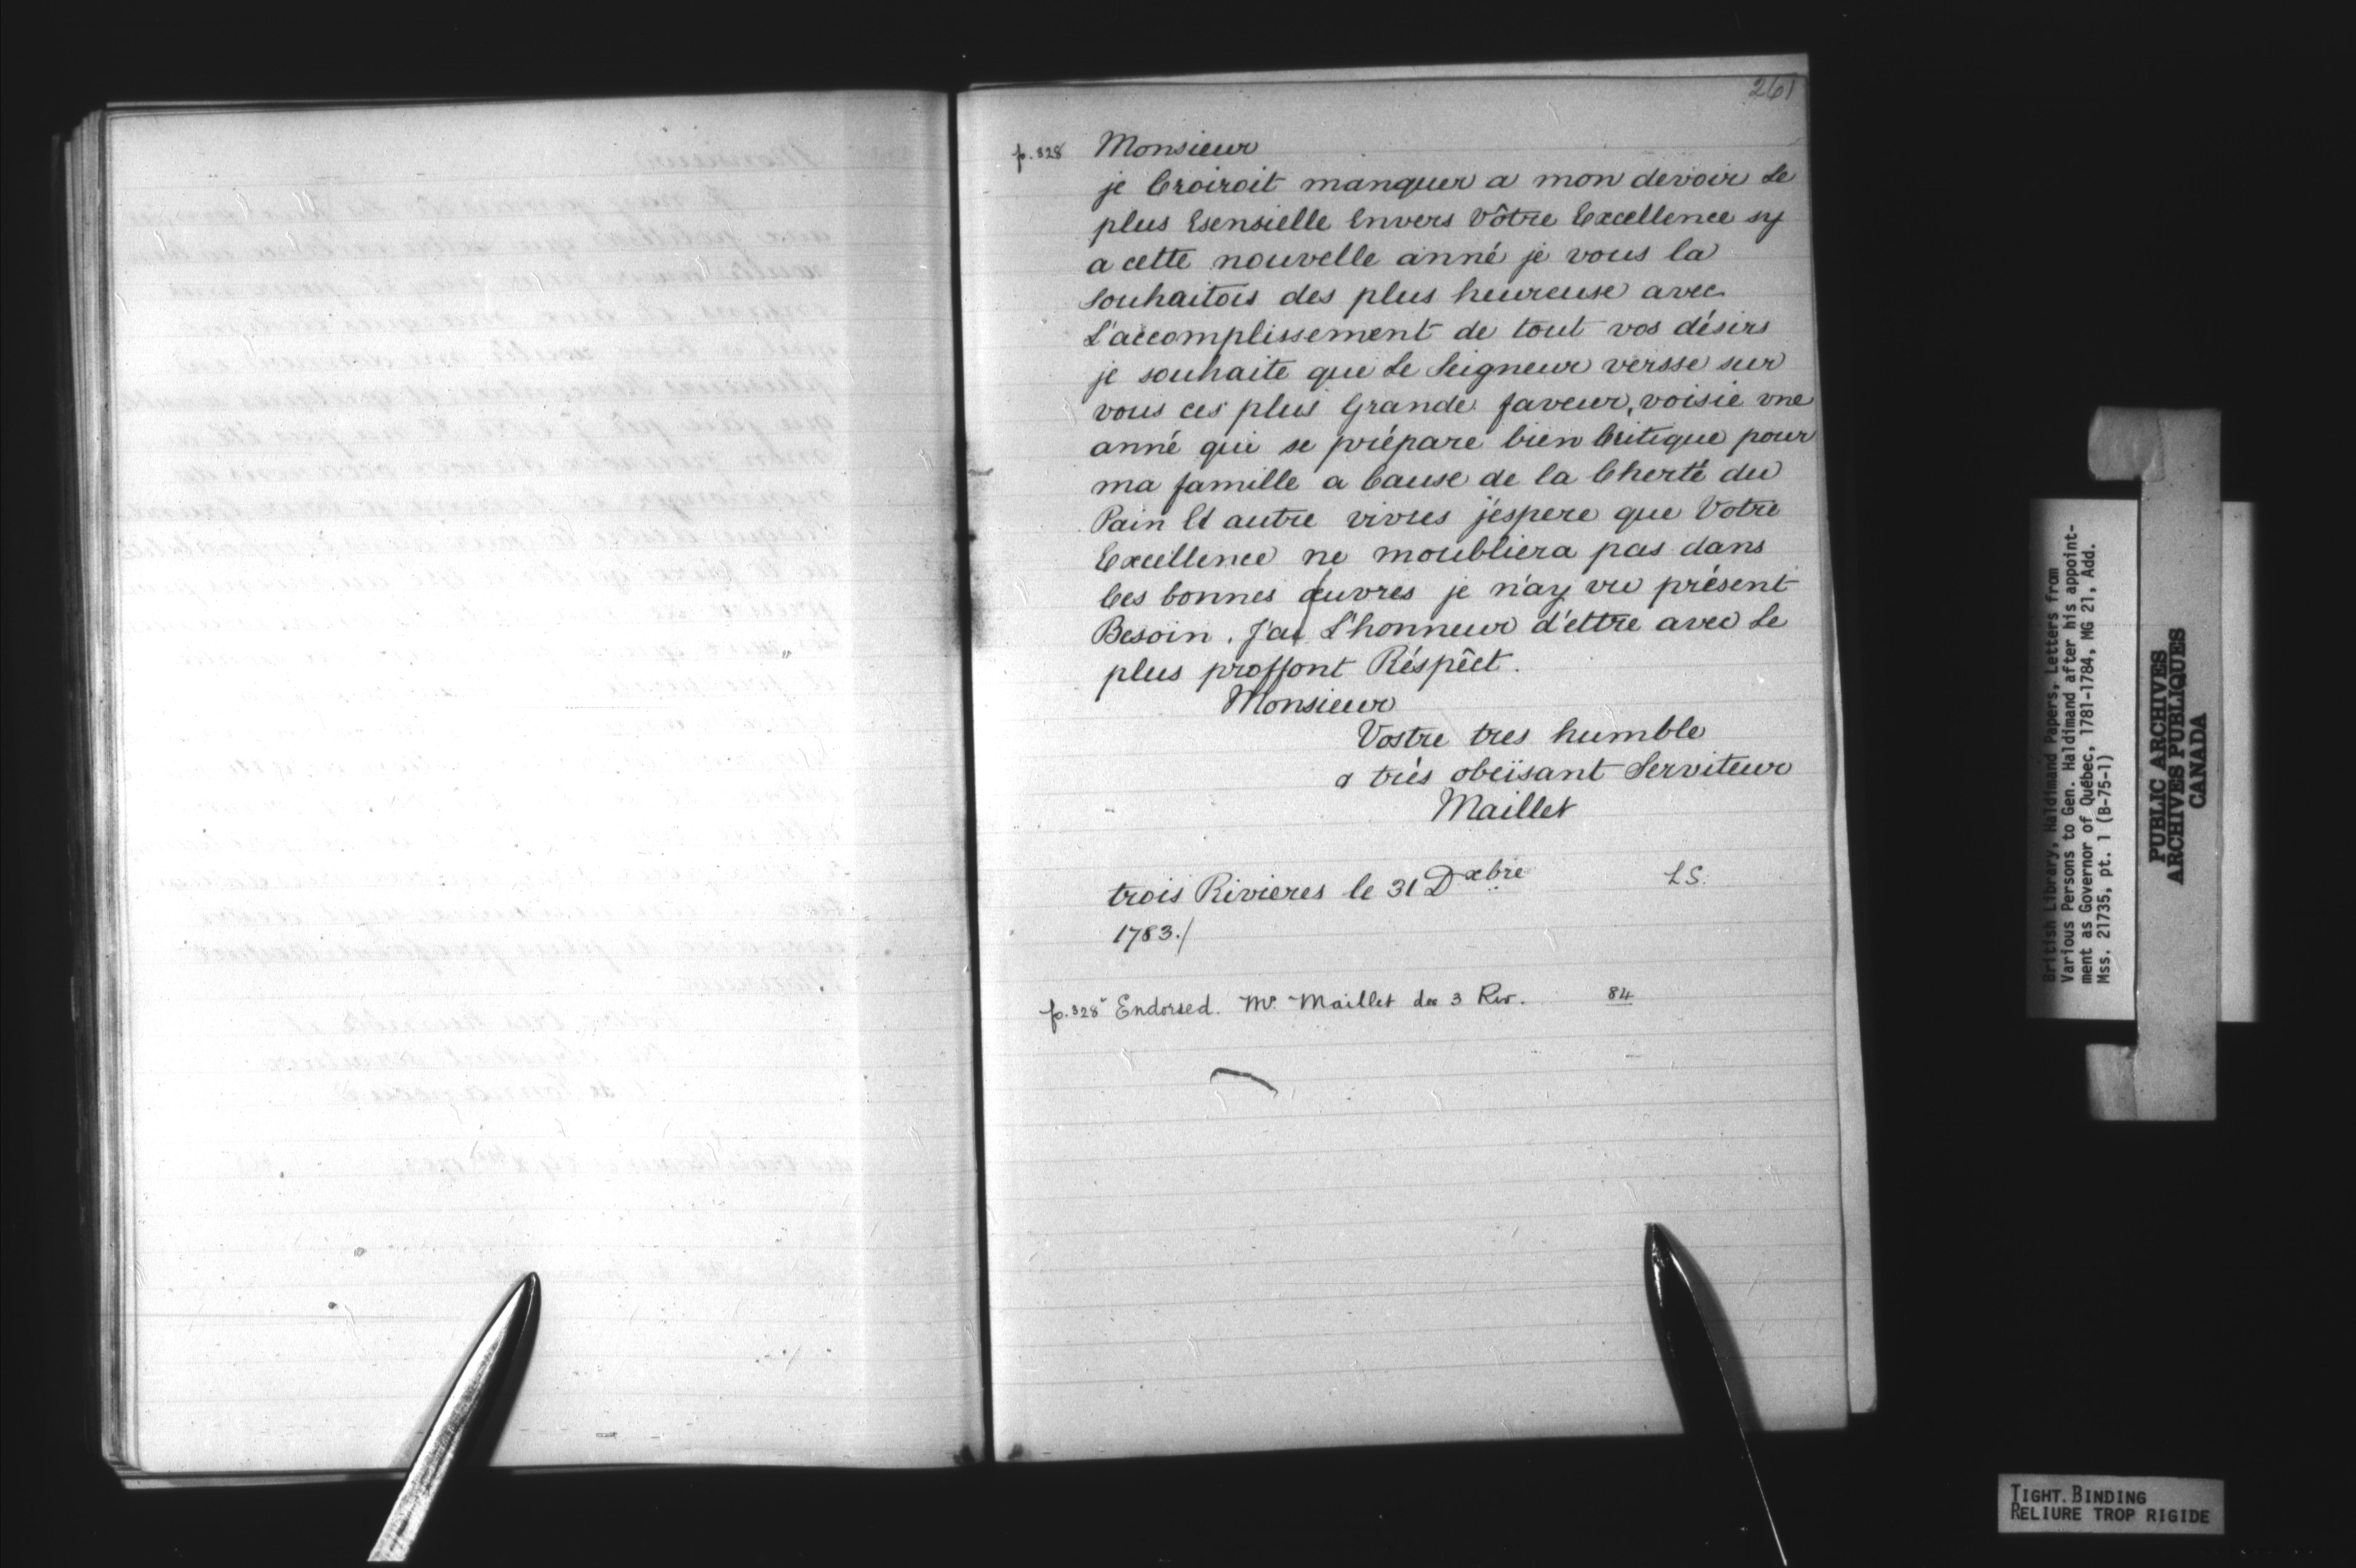 261
p. 328 Monsieur
je Croiroit manquer a mon devoir Le
plus Esensielle Envers Vôtre Excellence sy
a cette nouvelle anné je vous la
souhaitois des plus heureuse avec
L'accomplissement de tout vos désirs
je souhaite que Le Seigneur versse sur
vous ces plus Grande faveur, voisie vne
anné qui se prépare bien Critique pour
ma famille a Cause de la Cherté du
Pain Et autre vivres j'éspere que Votre
Excellence ne moubliera pas dans
Ces bonnes œuvres je n'ay vu présent
Besoin. J'ai L'honneur d'ettre avec Le
plus proffont Réspêct.
Monsieur
Vostre tres humble
& trés obeïsant Serviteur
Maillet
trois Rivieres le 31 Dxbre L S.
1783./
p. 328v Endorsed. Mr. Maillet des 3 Riv. 84
British Library, Haldimand Papers, Letters from
Various Persons to Gen. Haldimand after his appoint-
ment as Governor of Québec, 1781-1784, MG 21, Add.
Mss. 21735, pt. 1 (B-75-1)
PUBLIC ARCHIVES
ARCHIVES PUBLIQUES
CANADA
TIGHT BINDING
RELIURE TROP RIGIDE